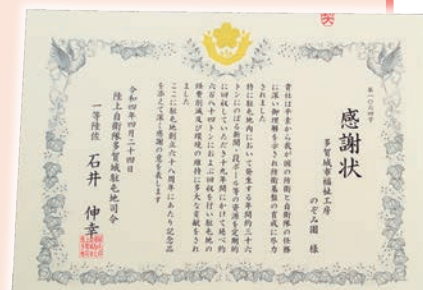 第一〇六四号
感謝状
多賀城市福祉工房
のぞみ園 様
貴社は平素から我が国の防衛と自衛隊の任務
に深い御理解を示され防衛基盤の育成に尽力
されました
特に駐屯地内において発生する年間約三十六
トンにのぼる新聞・段ボール等の資源を定期的
に回収していただき十九年間にかけて延べ約
六百八十四トンにおよぶ回収を行い駐屯地の
経費削減及び環境の維持に多大な貢献をされ
ました
ここに駐屯地創立六十八周年にあたり記念品
を添えて深く感謝の意を表します
令和四年四月二十四日
陸上自衛隊多賀城駐屯地司令
一等陸佐 石井 伸幸